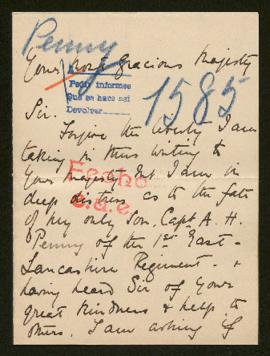 Penny
Your most Gracious Majesty
Pedir informes
Que se hace así
Devolver
1585
Sir.
Forgive the liberty I am
taking in thus writing to
Your Majesty but I am in
deep distress as to the fate
of my only Son, Capt A. H.
Penny of the 1st East-
Lancashire Regiment - &
having heard Sir of Yours
great kindness & help to
others, I am asking if